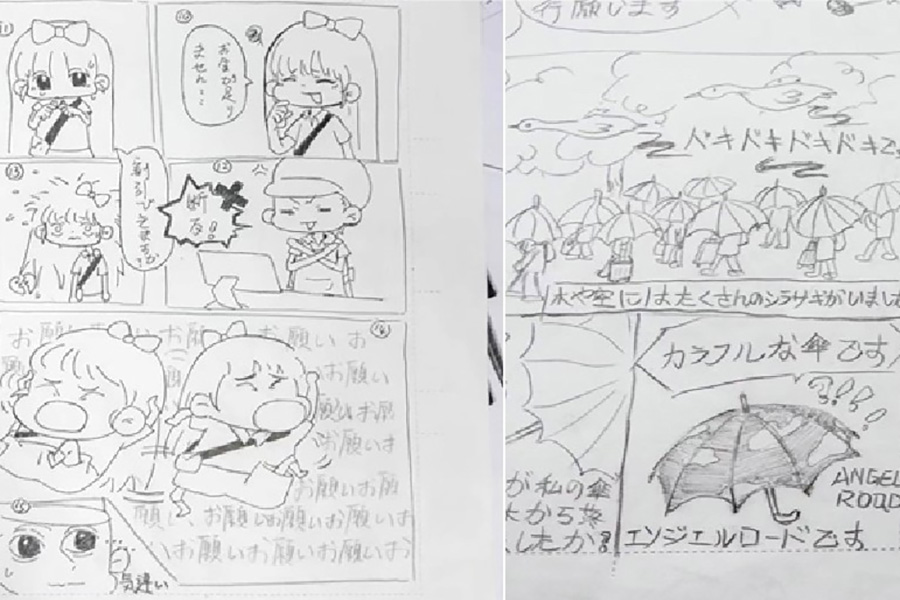 ⑪
⑩
お金が足り
ません…
⑬
⑫
割引してください
断
る!!
⑭
お願い お願い お願い お
お願い
お願い
お願いお願
願い、お願いお願いお願いお
いお願いお願いお願いお
⑮
気違い
行願います
ドキドキドキドキです
木や空にはたくさんのシラサギがいました
カラフルな傘です
が私の傘
したか?
ANGEL
ROAD
エンジェルロードです